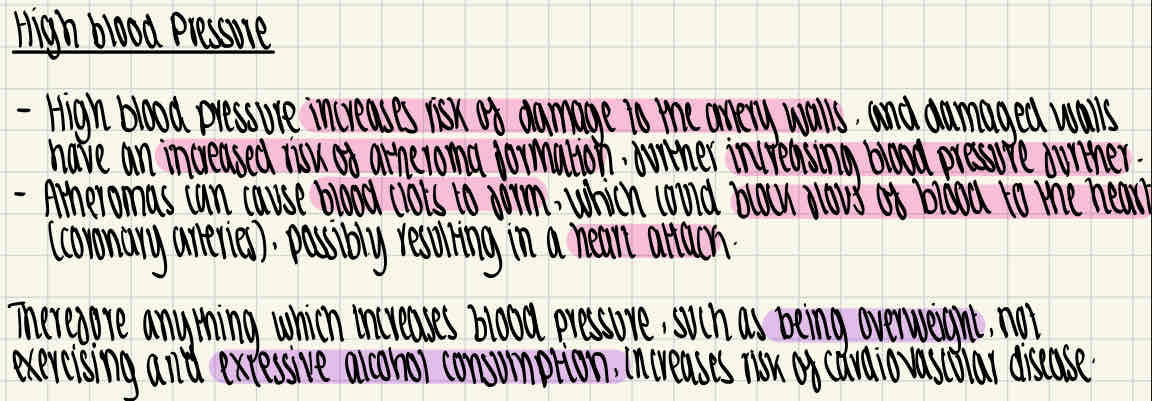 High blood Pressure
- High blood pressure increases risk of damage to the artery walls, and damaged walls
have an increased risk of atheroma formation, further increasing blood pressure further.
- Atheromas can cause blood clots to form, which could block flow of blood to the heart
(coronary arteries), possibly resulting in a heart attack.
Therefore anything which increases blood pressure, such as being overweight, not
exercising and expessive alcohol consumption, increases risk of cardiovascular disease.